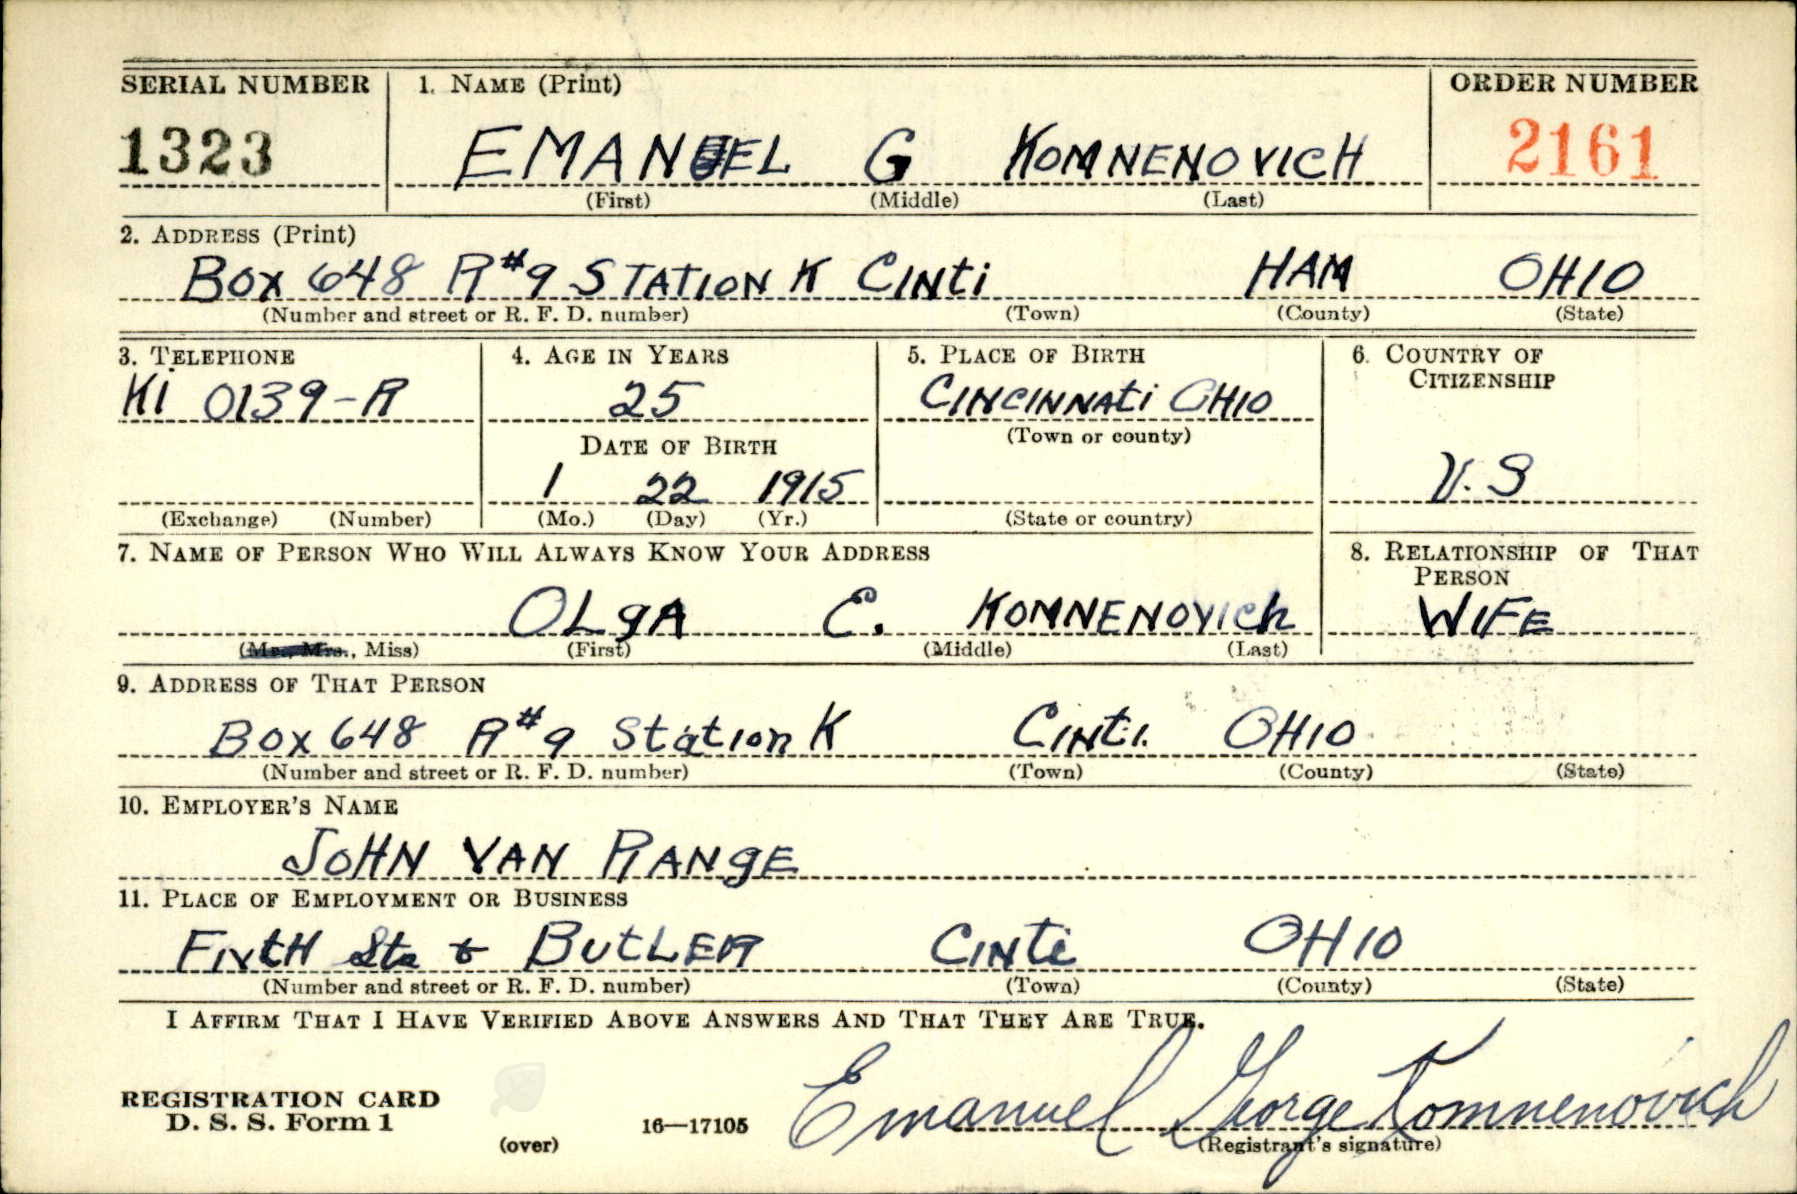 SERIAL NUMBER 1. NAME (Print) ORDER NUMBER
1323 EMANUEL G KOMNENOVICH 2161
(First) (Middle) (Last)
2. ADDRESS (Print)
BOX 648 R#9 STATION K CINti HAM OHIO
(Number and street or R. F. D. number) (Town) (County) (State)
3. TELEPHONE 4. AGE IN YEARS 5. PLACE OF BIRTH 6. COUNTRY OF CITIZENSHIP
KI 0139-R 25 CINCINNATi OHIO
DATE OF BIRTH (Town or county)
1 22 1915 U.S
(Exchange) (Number) (Mo.) (Day) (Yr.) (State or country)
7. NAME OF PERSON WHO WILL ALWAYS KNOW YOUR ADDRESS 8. RELATIONSHIP OF THAT PERSON
OLgA C. KOMNENOVICh WIFE
(Mr., Mrs., Miss) (First) (Middle) (Last)
9. ADDRESS OF THAT PERSON
BOX 648 R#9 Station K CINti. OHIO
(Number and street or R. F. D. number) (Town) (County) (State)
10. EMPLOYER'S NAME
JOHN VAN RANgE
11. PLACE OF EMPLOYMENT OR BUSINESS
FivtH Sts & BUTLER CINti OHIO
(Number and street or R. F. D. number) (Town) (County) (State)
I AFFIRM THAT I HAVE VERIFIED ABOVE ANSWERS AND THAT THEY ARE TRUE.
Emanuel George Komnenovich
REGISTRATION CARD
D. S. S. Form 1 16—17105 (Registrant's signature)
(over)